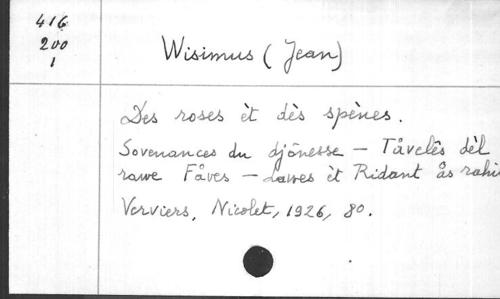 416
200
1
Wisimus (Jean)
Des roses èt dès spènes.
Sovenances du djônesse — Tåvelês dèl
rawe Fåves — lawes èt Ridant ås rahi
Verviers, Nicolet, 1926, 80.